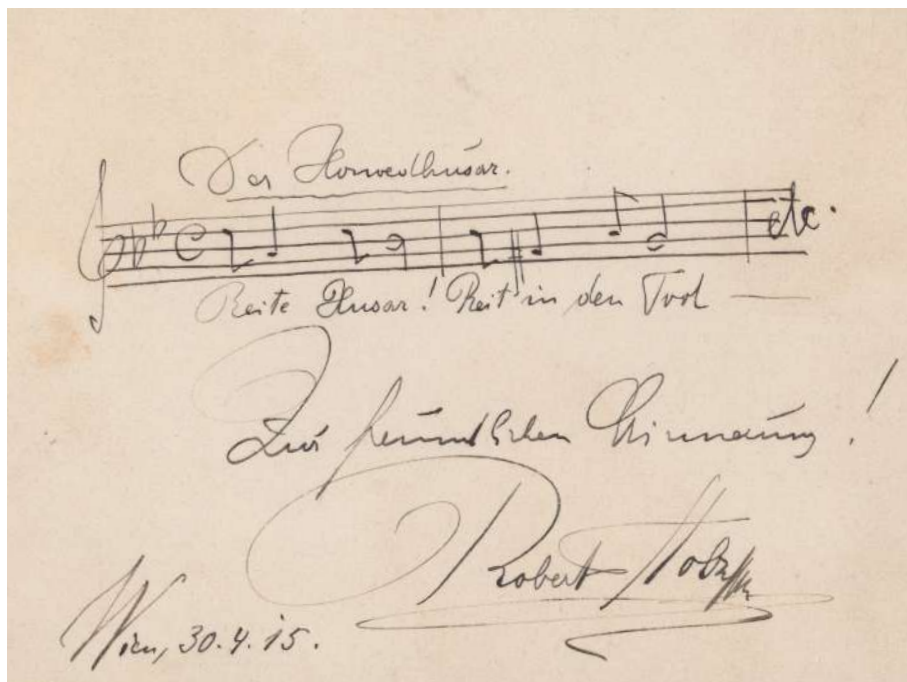 Der Honvedhusar.
etc.
Reite Husar! Reit in den Tod —
Zur freundlichen Erinnerung!
Robert Stolz
Wien, 30.4.15.